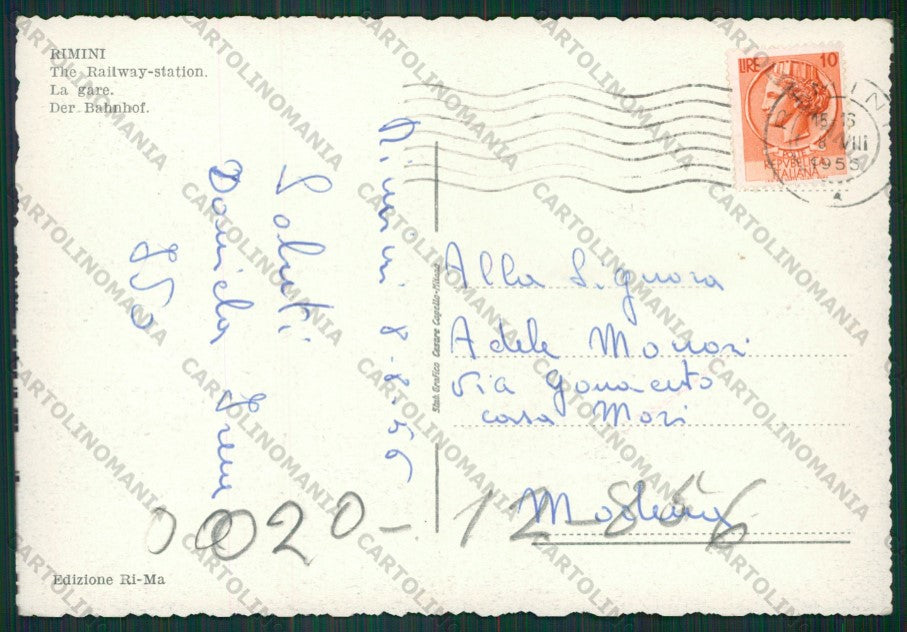 RIMINI
The Railway-station.
La gare.
Der Bahnhof.
LIRE 10
15-16
8 VIII
1955
REPVBBLICA
ITALIANA
Rimini 8-8-55
Saluti
Daniela Irene
850
Alla Signora
Adele
Via
casa Mori
Modena
Stab. Grafico Cesare Capello-Milano
0020-
12-856
Edizione Ri-Ma
CARTOLINOMANIA